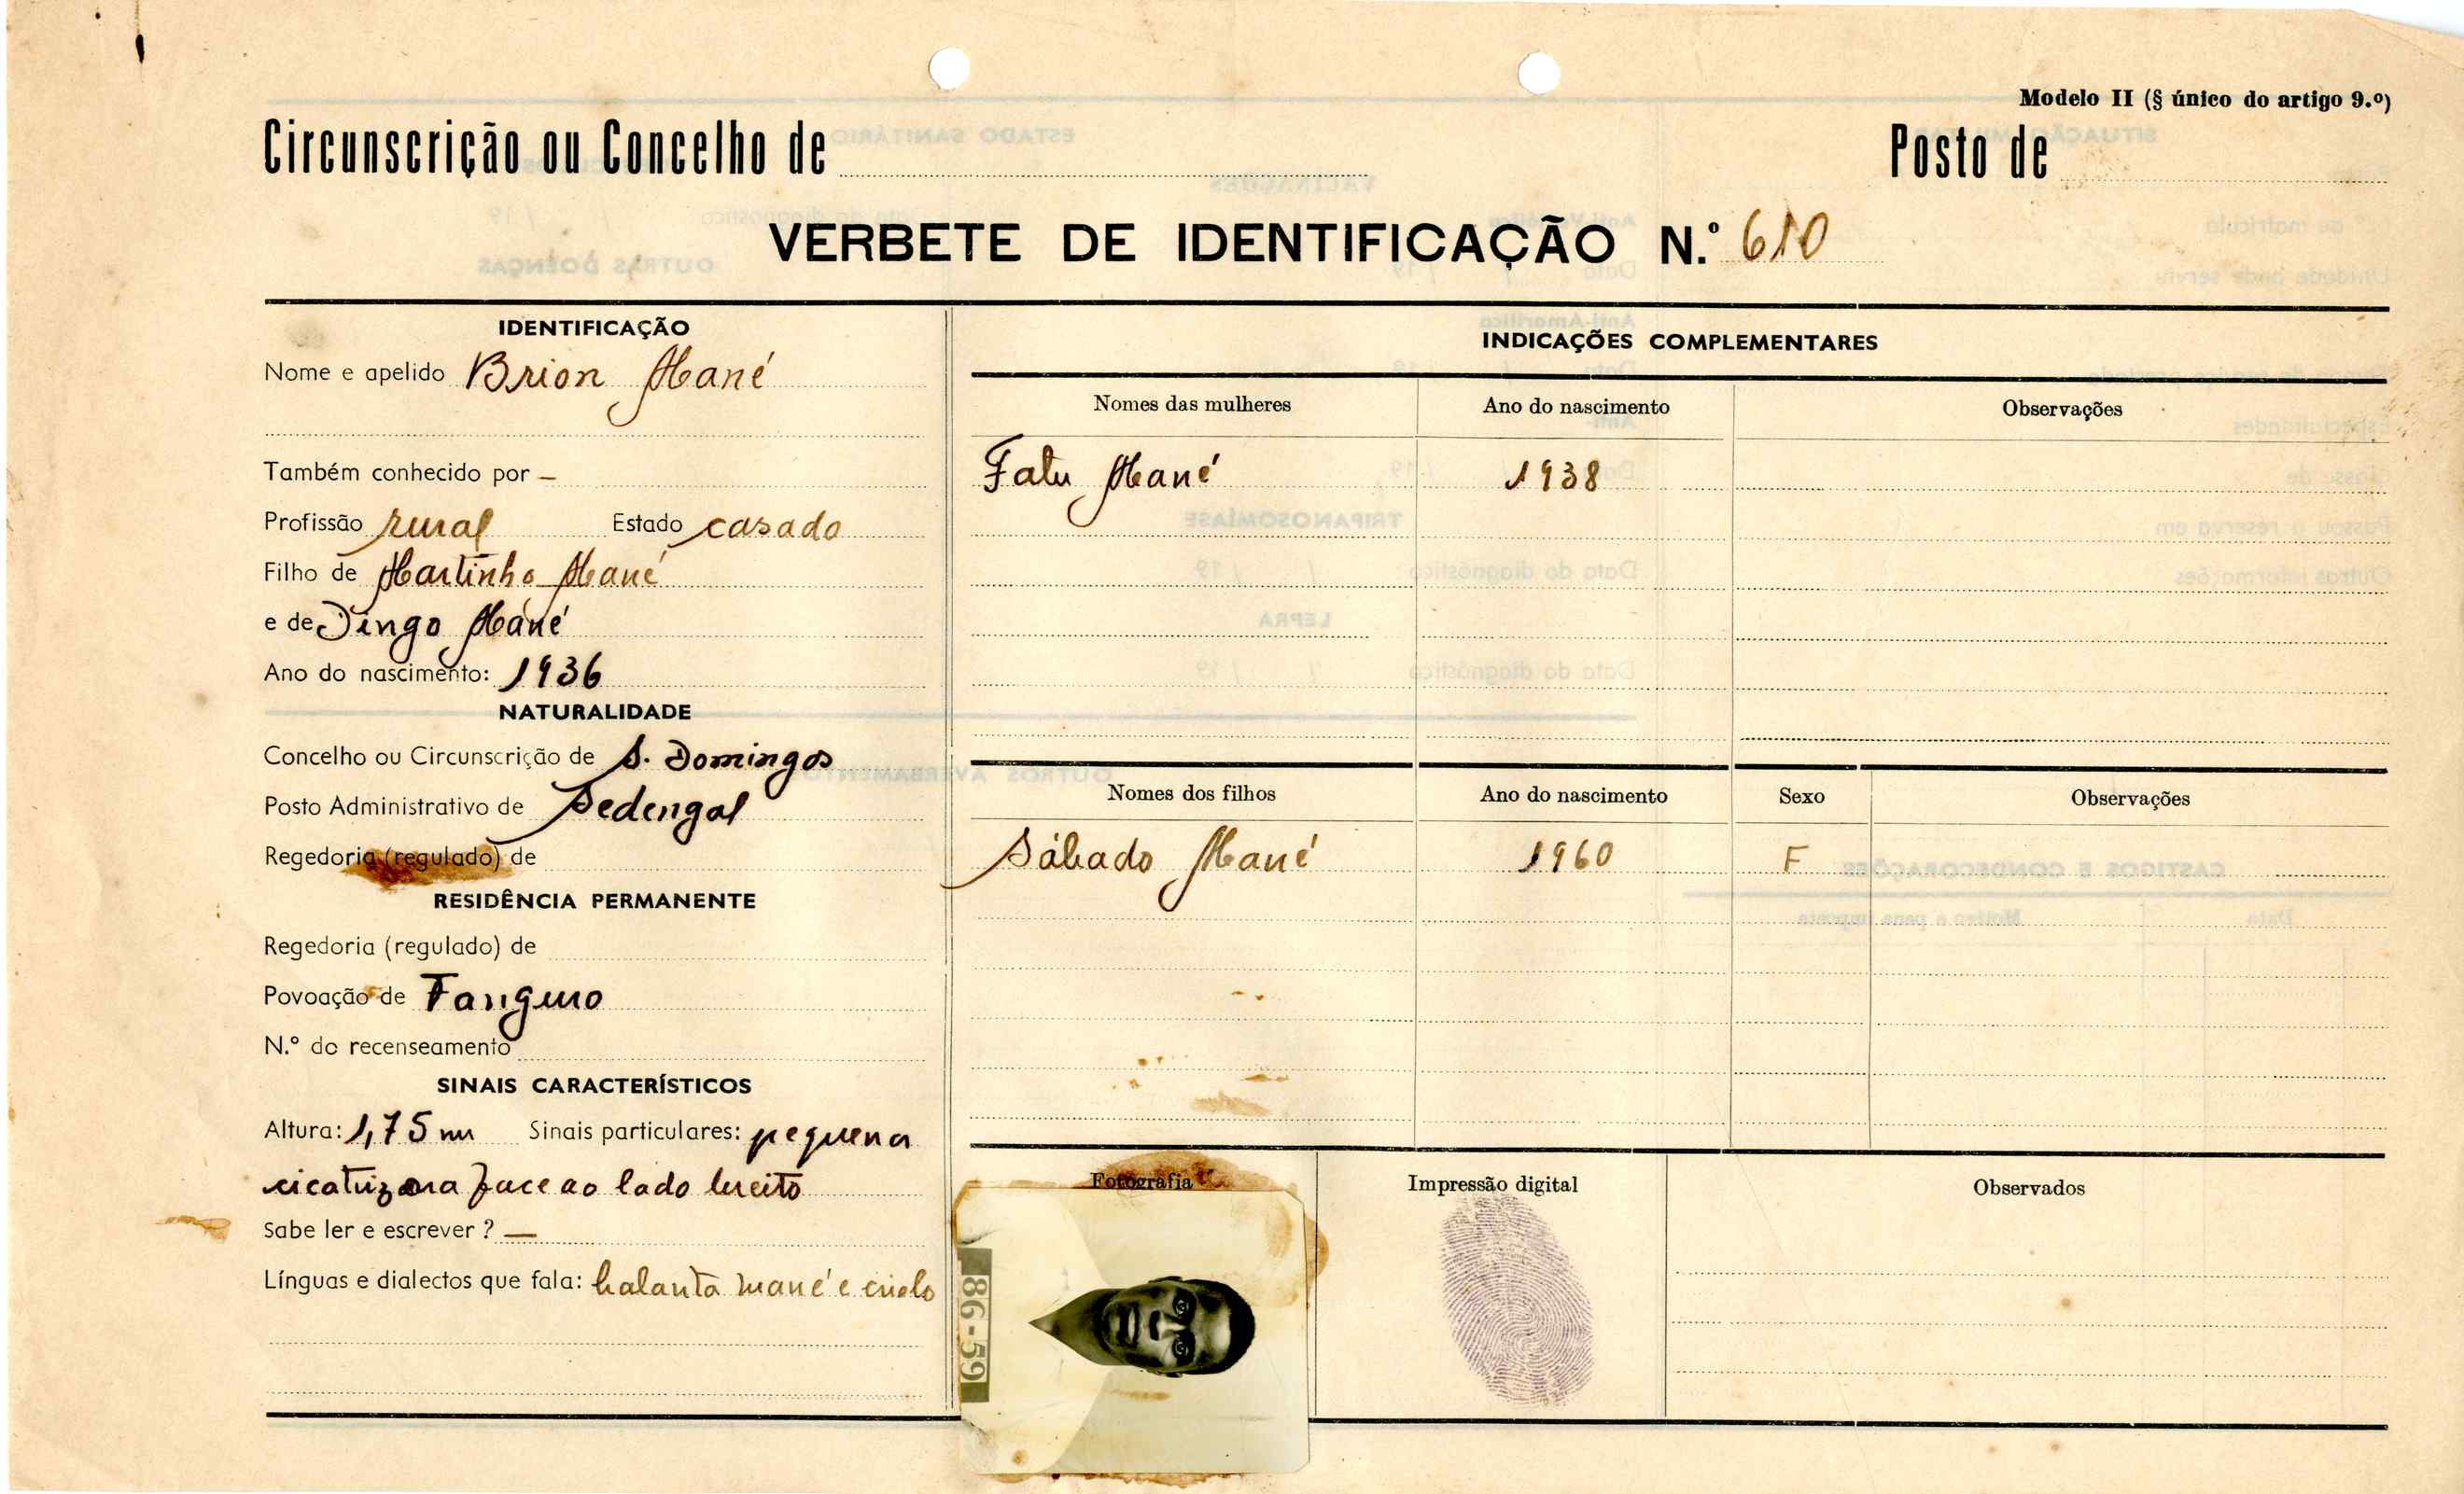 Modelo II (§ único do artigo 9.º)
Circunscrição ou Concelho de
Posto de
VERBETE DE IDENTIFICAÇÃO N.º 610
IDENTIFICAÇÃO
Nome e apelido Brion Mané
Também conhecido por —
Profissão rural Estado casado
Filho de Martinho Mané
e de Dingo Mané
Ano do nascimento: 1936
NATURALIDADE
Concelho ou Circunscrição de S. Domingos
Posto Administrativo de Sedengal
Regedoria (regulado) de
RESIDÊNCIA PERMANENTE
Regedoria (regulado) de
Povoação de
N.º do recenseamento
SINAIS CARACTERÍSTICOS
Altura: 1,75 m Sinais particulares: pequena
cicatriz na face ao lado
Sabe ler e escrever ? —
Línguas e dialectos que fala: balanta mané e
INDICAÇÕES COMPLEMENTARES
Nomes das mulheres Ano do nascimento Observações
Fatu Mané 1938
Nomes dos filhos Ano do nascimento Sexo Observações
Sábado Mané 1960 F
Fotografia Impressão digital Observados
86-59